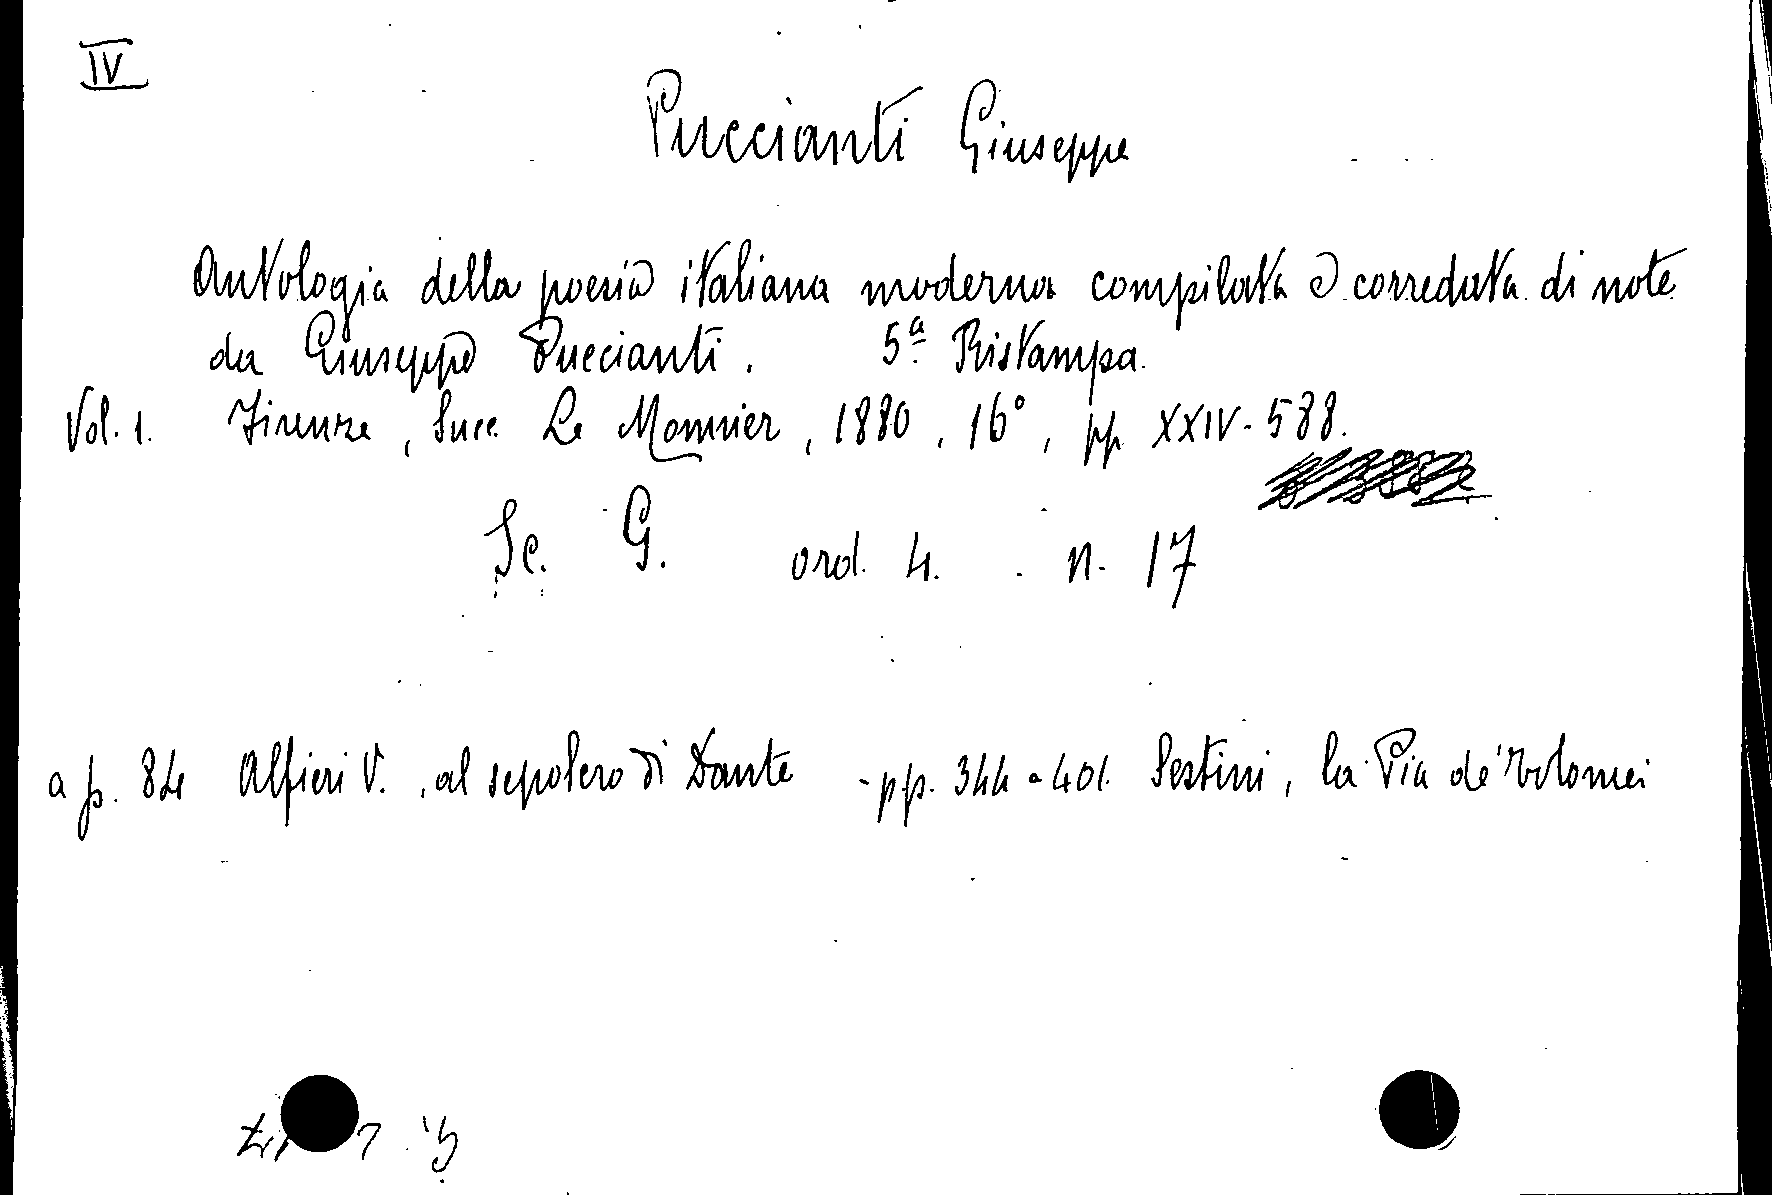 IV
Puccianti Giuseppe
Antologia della poesia italiana moderna compilata e corredata di note
da Giuseppe Puccianti. 5ª Ristampa.
Vol. 1. Firenze, Succ. Le Monnier, 1880, 16°, pp XXIV-588.
Sc. G. ord. 4. n. 17
a p. 84 Alfieri V., al sepolcro di Dante - pp. 344-401. Sestini, la Pia de' Tolomei